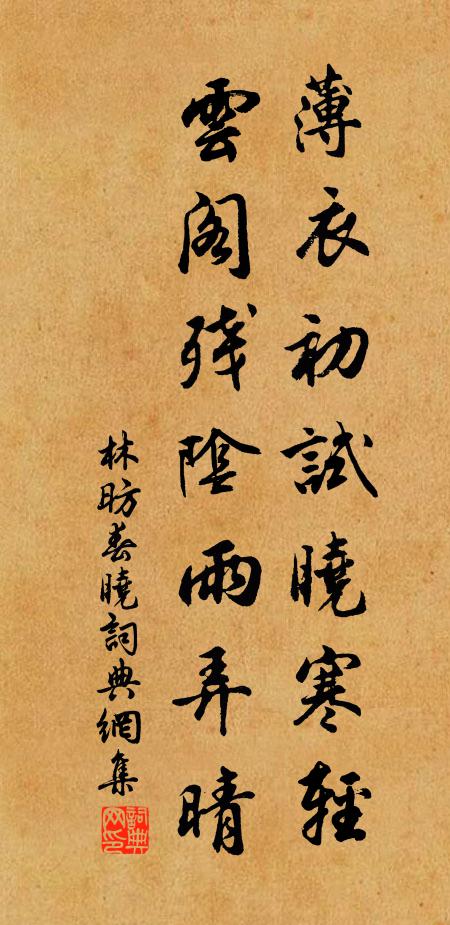 薄衣初試曉寒輕
雲閣殘陰雨弄晴
林昉春曉詞典網集
詞典网印